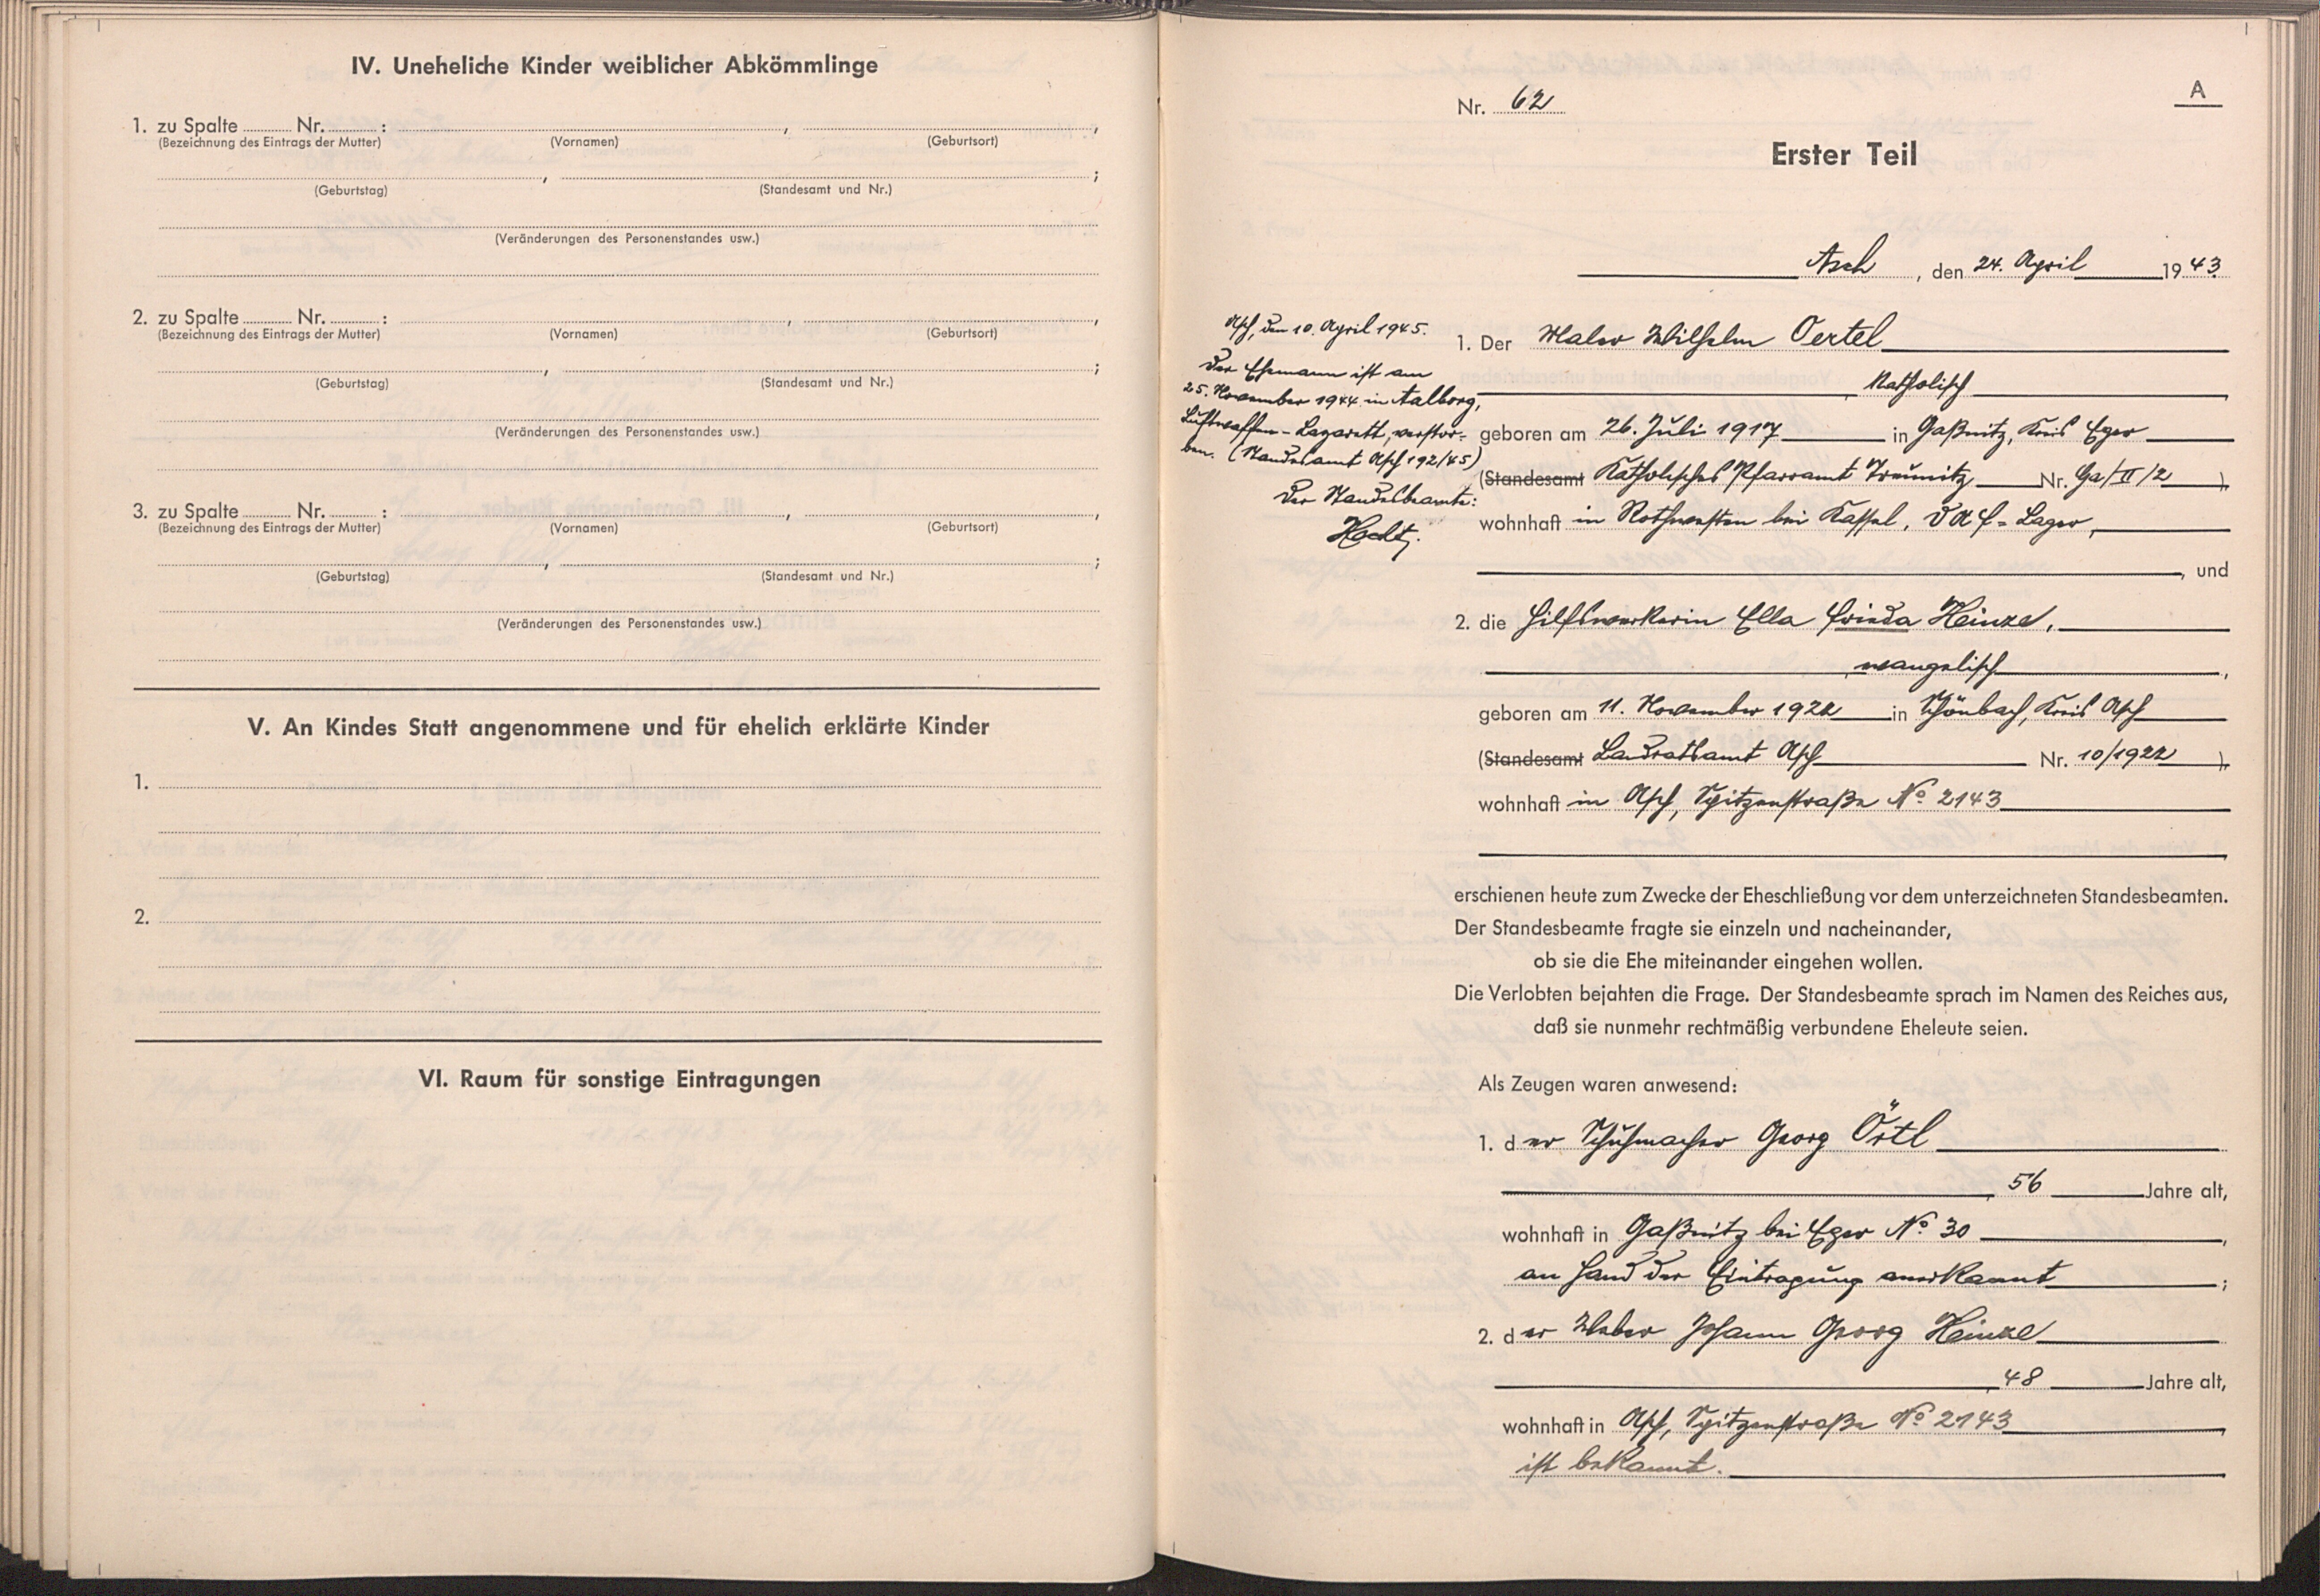 IV. Uneheliche Kinder weiblicher Abkömmlinge
1. zu Spalte Nr. : , ,
(Bezeichnung des Eintrags der Mutter) (Vornamen) (Geburtsort)
, ;
(Geburtstag) (Standesamt und Nr.)
(Veränderungen des Personenstandes usw.)
2. zu Spalte Nr. : , ,
(Bezeichnung des Eintrags der Mutter) (Vornamen) (Geburtsort)
, ;
(Geburtstag) (Standesamt und Nr.)
(Veränderungen des Personenstandes usw.)
3. zu Spalte Nr. : , ,
(Bezeichnung des Eintrags der Mutter) (Vornamen) (Geburtsort)
, ;
(Geburtstag) (Standesamt und Nr.)
(Veränderungen des Personenstandes usw.)
V. An Kindes Statt angenommene und für ehelich erklärte Kinder
1.
2.
VI. Raum für sonstige Eintragungen
A
Nr. 62
Erster Teil
Asch, den 24. April 1943
Asch, den 10. April 1945.
Der Ehemann ist am
25. November 1944 in Aalborg,
Luftwaffen-Lazarett, verstor-
ben. (Standesamt Asch 192/45)
Der Standesbeamte:
1. Der Maler Wilhelm Oertel
, katholisch,
geboren am 26. Juli 1917 in Gaßnitz, Kreis Eger
(Standesamt Katholisches Pfarramt Treunitz Nr. Ga/II/2 ),
wohnhaft in Rothwesten bei Kassel, DAF-Lager,
, und
2. die Hilfswerkerin Ella Frieda Heinzel,
, evangelisch,
geboren am 11. November 1922 in Schönbach, Kreis Asch
(Standesamt Landratsamt Asch Nr. 10/1922 ),
wohnhaft in Asch, Spitzenstraße No 2143
,
erschienen heute zum Zwecke der Eheschließung vor dem unterzeichneten Standesbeamten.
Der Standesbeamte fragte sie einzeln und nacheinander,
ob sie die Ehe miteinander eingehen wollen.
Die Verlobten bejahten die Frage. Der Standesbeamte sprach im Namen des Reiches aus,
daß sie nunmehr rechtmäßig verbundene Eheleute seien.
Als Zeugen waren anwesend:
1. der Schuhmacher Georg Örtl
, 56 Jahre alt,
wohnhaft in Gaßnitz bei Eger No 30,
an Hand der Eintragung anerkannt;
2. der Weber Johann Georg Heinzel
, 48 Jahre alt,
wohnhaft in Asch, Spitzenstraße No 2143,
ist bekannt.